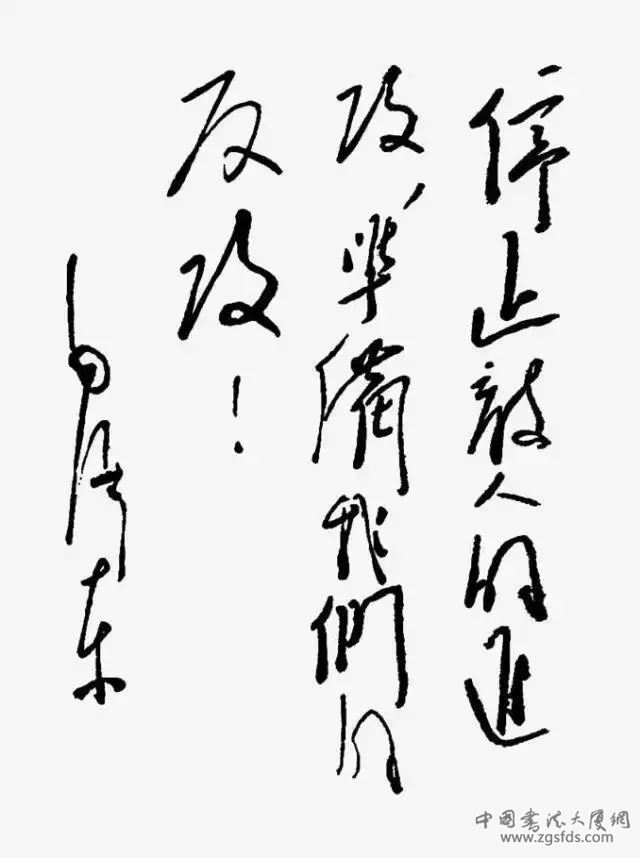 停止敵人的進
攻，準備我們的
反攻！
毛澤东
中国书法大厦網
www.zgsfds.com